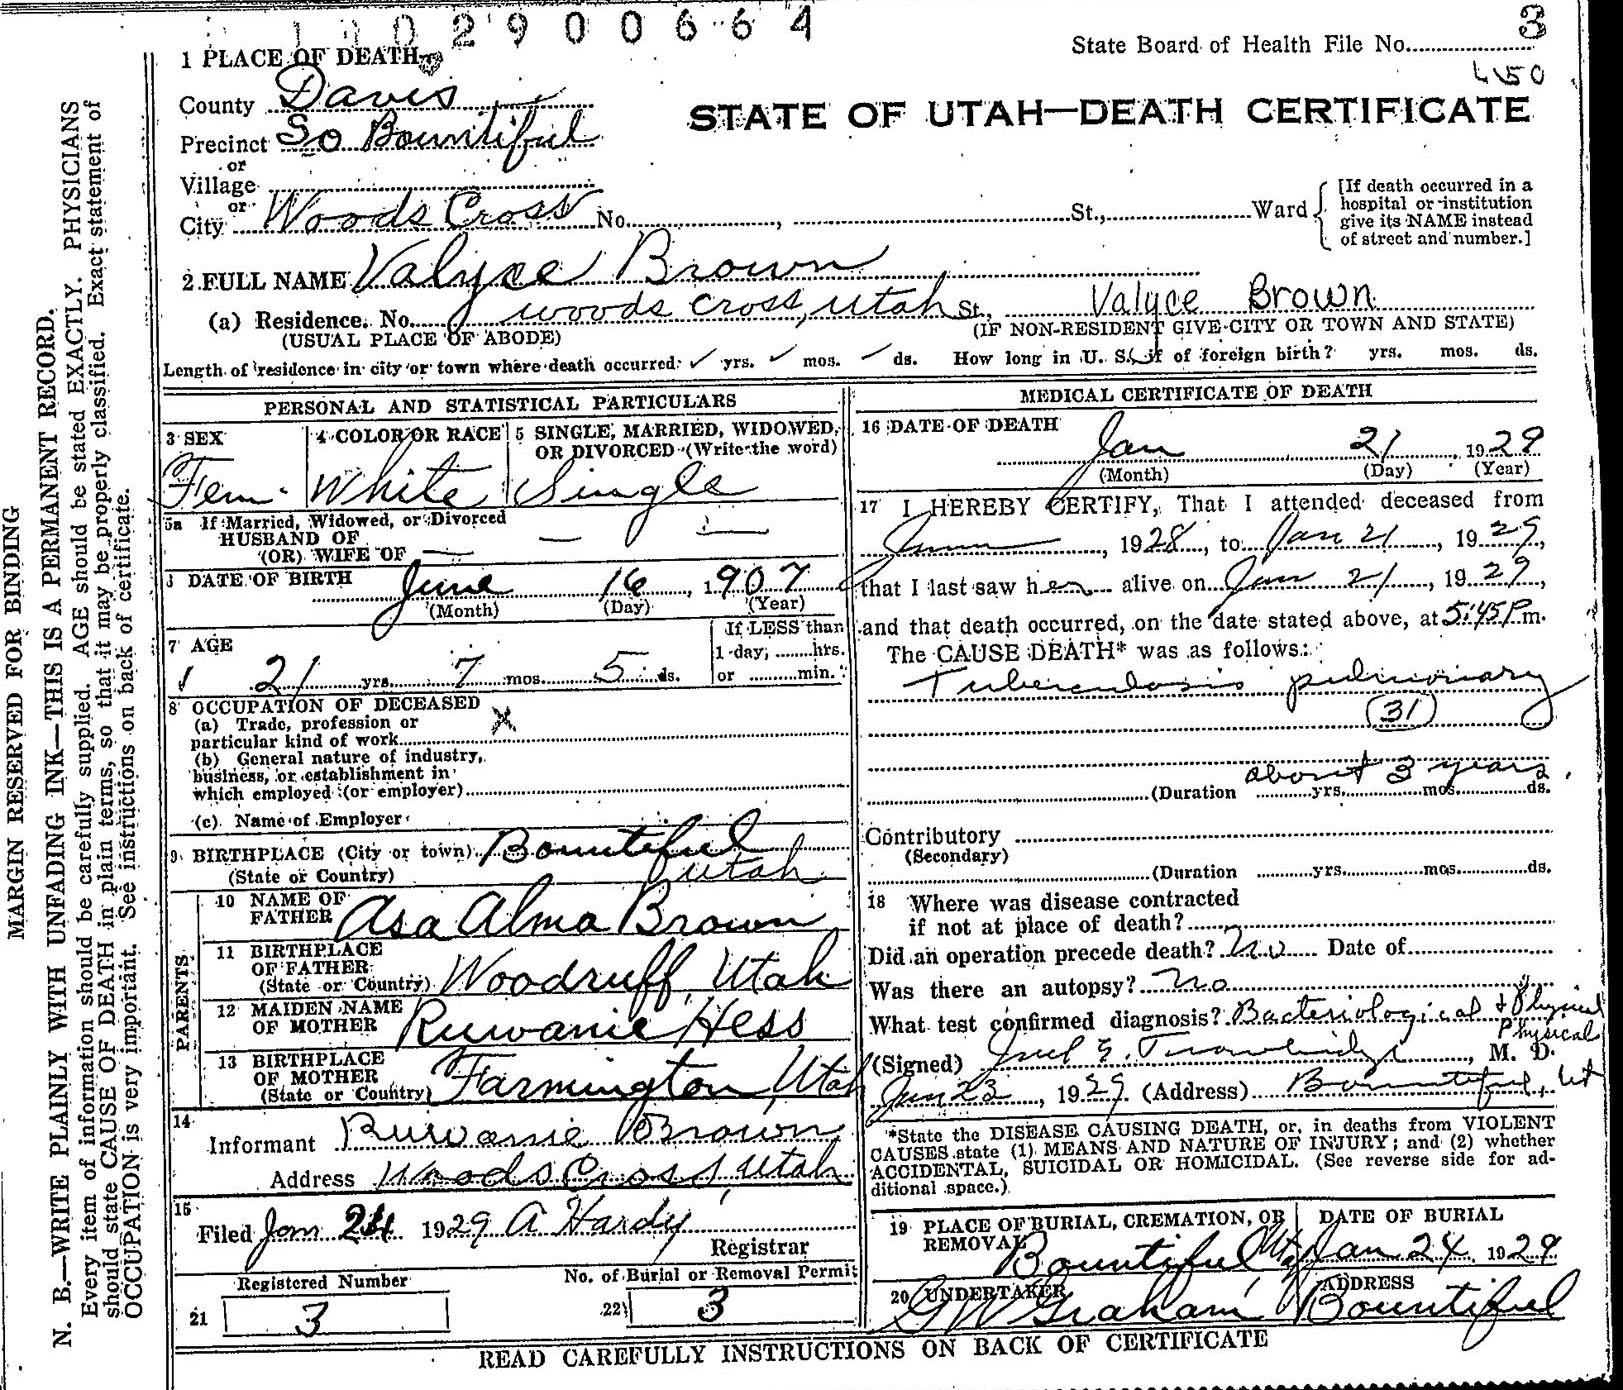 1002900664
State Board of Health File No. 3
450
1 PLACE OF DEATH
County Davis
STATE OF UTAH—DEATH CERTIFICATE
Precinct So Bountiful
or
Village
or
City Woods Cross No. , St., Ward
[If death occurred in a
hospital or institution
give its NAME instead
of street and number.]
2 FULL NAME Valyce Brown
(a) Residence. No. Woods Cross, Utah St., Valyce Brown
(USUAL PLACE OF ABODE) (IF NON-RESIDENT GIVE CITY OR TOWN AND STATE)
Length of residence in city or town where death occurred: ✓ yrs. ✓ mos. ✓ ds. How long in U. S. if of foreign birth? yrs. mos. ds.
PERSONAL AND STATISTICAL PARTICULARS
3 SEX
Fem.
4 COLOR OR RACE
White
5 SINGLE, MARRIED, WIDOWED,
OR DIVORCED (Write the word)
Single
5a If Married, Widowed, or Divorced
HUSBAND OF —
(OR) WIFE OF —
DATE OF BIRTH June 16, 1907
(Month) (Day) (Year)
7 AGE
21 yrs. 7 mos. 5 ds.
If LESS than
1 day, hrs.
or min.
8 OCCUPATION OF DECEASED
(a) Trade, profession or
particular kind of work X
(b) General nature of industry,
business, or establishment in
which employed (or employer)
(c) Name of Employer
9 BIRTHPLACE (City or town) Bountiful
(State or Country) Utah
PARENTS
10 NAME OF
FATHER Asa Alma Brown
11 BIRTHPLACE
OF FATHER
(State or Country) Woodruff, Utah
12 MAIDEN NAME
OF MOTHER Ruwanie Hess
13 BIRTHPLACE
OF MOTHER
(State or Country) Farmington, Utah
14
Informant Ruwanie Brown
Address Woods Cross, Utah
15
Filed Jan 24 1929 A Hardy
Registrar
Registered Number
21 3
No. of Burial or Removal Permit
22 3
MEDICAL CERTIFICATE OF DEATH
16 DATE OF DEATH
Jan 21, 1929
(Month) (Day) (Year)
17 I HEREBY CERTIFY, That I attended deceased from
, 1928, to Jan 21, 1929,
that I last saw her alive on Jan 21, 1929,
and that death occurred, on the date stated above, at 5:45 P.m.
The CAUSE DEATH* was as follows:
Tuberculosis pulmonary
(31)
about 3 years
(Duration yrs. mos. ds.
Contributory
(Secondary)
(Duration yrs. mos. ds.
18 Where was disease contracted
if not at place of death?
Did an operation precede death? No Date of
Was there an autopsy? No
What test confirmed diagnosis? Bacteriological & Physical
Physical
(Signed) Trowbridge, M. D.
Jan 23, 1929. (Address) Bountiful, Ut
*State the DISEASE CAUSING DEATH, or, in deaths from VIOLENT
CAUSES state (1) MEANS AND NATURE OF INJURY; and (2) whether
ACCIDENTAL, SUICIDAL OR HOMICIDAL. (See reverse side for ad-
ditional space.)
19 PLACE OF BURIAL, CREMATION, OR
REMOVAL
Bountiful Utah
DATE OF BURIAL
Jan 24 1929
20 UNDERTAKER
G W Graham
ADDRESS
Bountiful
READ CAREFULLY INSTRUCTIONS ON BACK OF CERTIFICATE
MARGIN RESERVED FOR BINDING
N. B.—WRITE PLAINLY WITH UNFADING INK—THIS IS A PERMANENT RECORD.
Every item of information should be carefully supplied. AGE should be stated EXACTLY. PHYSICIANS
should state CAUSE OF DEATH in plain terms, so that it may be properly classified. Exact statement of
OCCUPATION is very important. See instructions on back of certificate.